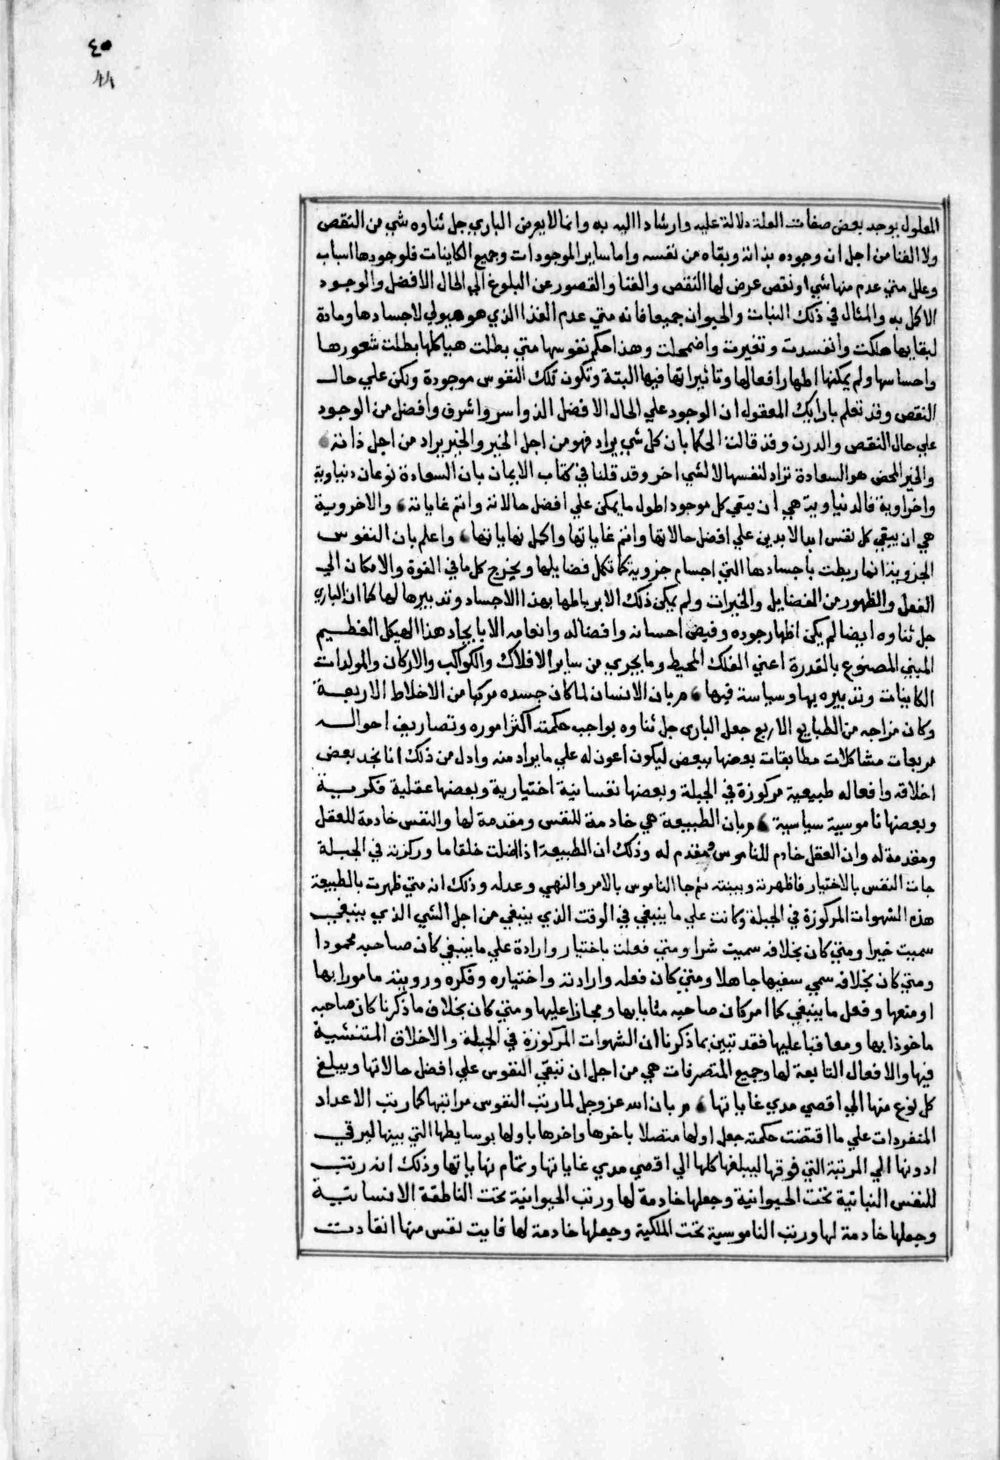 ٤٥
٤٤
المعلول يوجد بعض صفات العلة دلالة عليه وارشادا اليه به وانما لا يعرض الباري جل ثناوه شي من النقص
ولا الفنا من اجل ان وجوده بذاته وبقاه من نفسه واما ساير الموجودات وجميع الكاينات فلوجودها اسباب
وعلل متي عدم منها شي او نقص عرض لها النقص والفنا والقصور عن البلوغ الي الحال الافضل والوجود
الاكل به والمثال في ذلك النبات والحيوان جميعا فانه متي عدم الغذا الذي هو هيولي لاجسادها ومادة
لبقايها هلكت وانفسدت وتغيرت واضمحلت وهذا حكم نفوسها متي بطلت هياكلها بطلت شعورها
واحساسها ولم يمكنها اظهار افعالها وتاثيراتها فيها البتة وتكون تلك النفوس موجودة ولكن علي حال
النقص وقد تعلم بارايك المعقول ان الوجود علي الحال الافضل الذ واسر واشرف وافضل من الوجود
علي حال النقص والدرن وقد قالت الحكما بان كل شي يراد فهو من اجل الخير والخير يراد من اجل ذاته
والخير المحض هو السعادة تراد لنفسها لا لشي اخر وقد قلنا في كتاب الايمان بان السعادة نوعان دنياوية
واخراوية فالدنياوية هي ان يبقي كل موجود اطول ما يمكن علي افضل حالاته واتم غاياته والاخروية
هي ان يبقي كل نفس ابدا الابدين علي افضل حالاتها واتم غاياتها واكمل نهاياتها واعلم بان النفوس
الجزوية انما ربطت باجسادها التي اجسام جزوية كما تكمل فضايلها ويخرج كل ما في القوة والامكان الي
الفعل والظهور من الفضايل والخيرات ولم يمكن ذلك الا برباطها بهذا الاجساد وتدبيرها لها كما ان الباري
جل ثناوه ايضا لم يكن اظهار جوده وفيض احسانه وافضاله وانعامه الا بايجاد هذا الهيكل العظيم
المبني المصنوع بالقدرة اعني الفلك المحيط وما يجري من ساير الافلاك والكواكب والاركان والمولدات
الكاينات وتدبيره بها وسياسة فيها م بان الانسان لما كان جسده مركبا من الاخلاط الاربعة
وكان مزاجه من الطبايع الاربع جعل الباري جل ثناوه بواجب حكمته اكثر اموره وتصاريف احواله
مربعات مشاكلات مطابقات بعضها ببعض ليكون اعون له علي ما يراد منه وادل من ذلك انا نجد بعض
اخلاقه وافعاله طبيعية مركوزة في الجبلة وبعضها نفسانية اختيارية وبعضها عقلية فكرية
وبعضها ناموسية سياسية م بان الطبيعة هي خادمة للنفس ومقدمة لها والنفس خادمة للعقل
ومقدمة له وان العقل خادم للناموس ومقدم له وذلك ان الطبيعة اذا خلقا ما وركزته في الجبلة
جات النفس بالاختيار فاظهرته وبينته ثم جا الناموس بالامر والنهي وعدله وذلك انه متي ظهرت بالطبيعة
هذه الشهوات المركوزة في الجبلة وكانت علي ما ينبغي في الوقت الذي ينبغي من اجل الشي الذي ينبغي
سميت خيرا ومتي كان بخلافه سميت شرا ومتي فعلت باختيار وارادة علي ما ينبغي كان صاحبه محمودا
ومتي كان بخلافه سمي سفيها جاهلا ومتي كان فعله وارادته واختياره وفكره ورويته مامورا بها
او منعها وفعل ما ينبغي كما امر كان صاحبه مثابا بها ومجازا عليها ومتي كان بخلاف ما ذكرنا كان صاحبه
ماخوذا بها ومعاقبا عليها فقد تبين بما ذكرنا ان الشهوات المركوزة في الجبلة والاخلاق المتنشية
فيها والافعال التابعة لها وجميع المتصرفات هي من اجل ان تبقي النفوس علي افضل حالاتها ويبلغ
كل نوع منها الي اقصي مدي غاياتها م بان الله عز وجل لما رتب النفوس مراتبها كمارتب الاعداد
المنفردات علي ما اقتضت حكمته جعل اولها متصلا باخرها واخرها باولها بوسايطها التي بينها ليرقي
ادونها الي المرتبة التي فوقها ليبلغها كلها الي اقصي مدي غاياتها وتمام نهاياتها وذلك انه رتب
للنفس النباتية تحت الحيوانية وجعلها خادمة لها ورتب الحيوانية تحت الناطقة الانسانية
وجعلها خادمة لها ورتب الناموسية تحت الملكية وجعلها خادمة لها فايت نفس منها انقادت